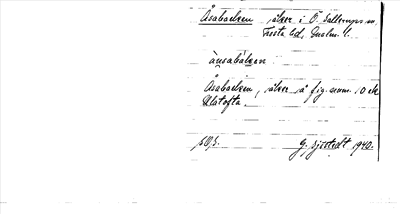 Åsabacken åker i Ö. Sallerups sn,
Frosta hd, Malm. l.
åusabàkən
Åsabacken, åker å fig. num. 10 och
Ulstofta.
G. Sjöstedt 1940.